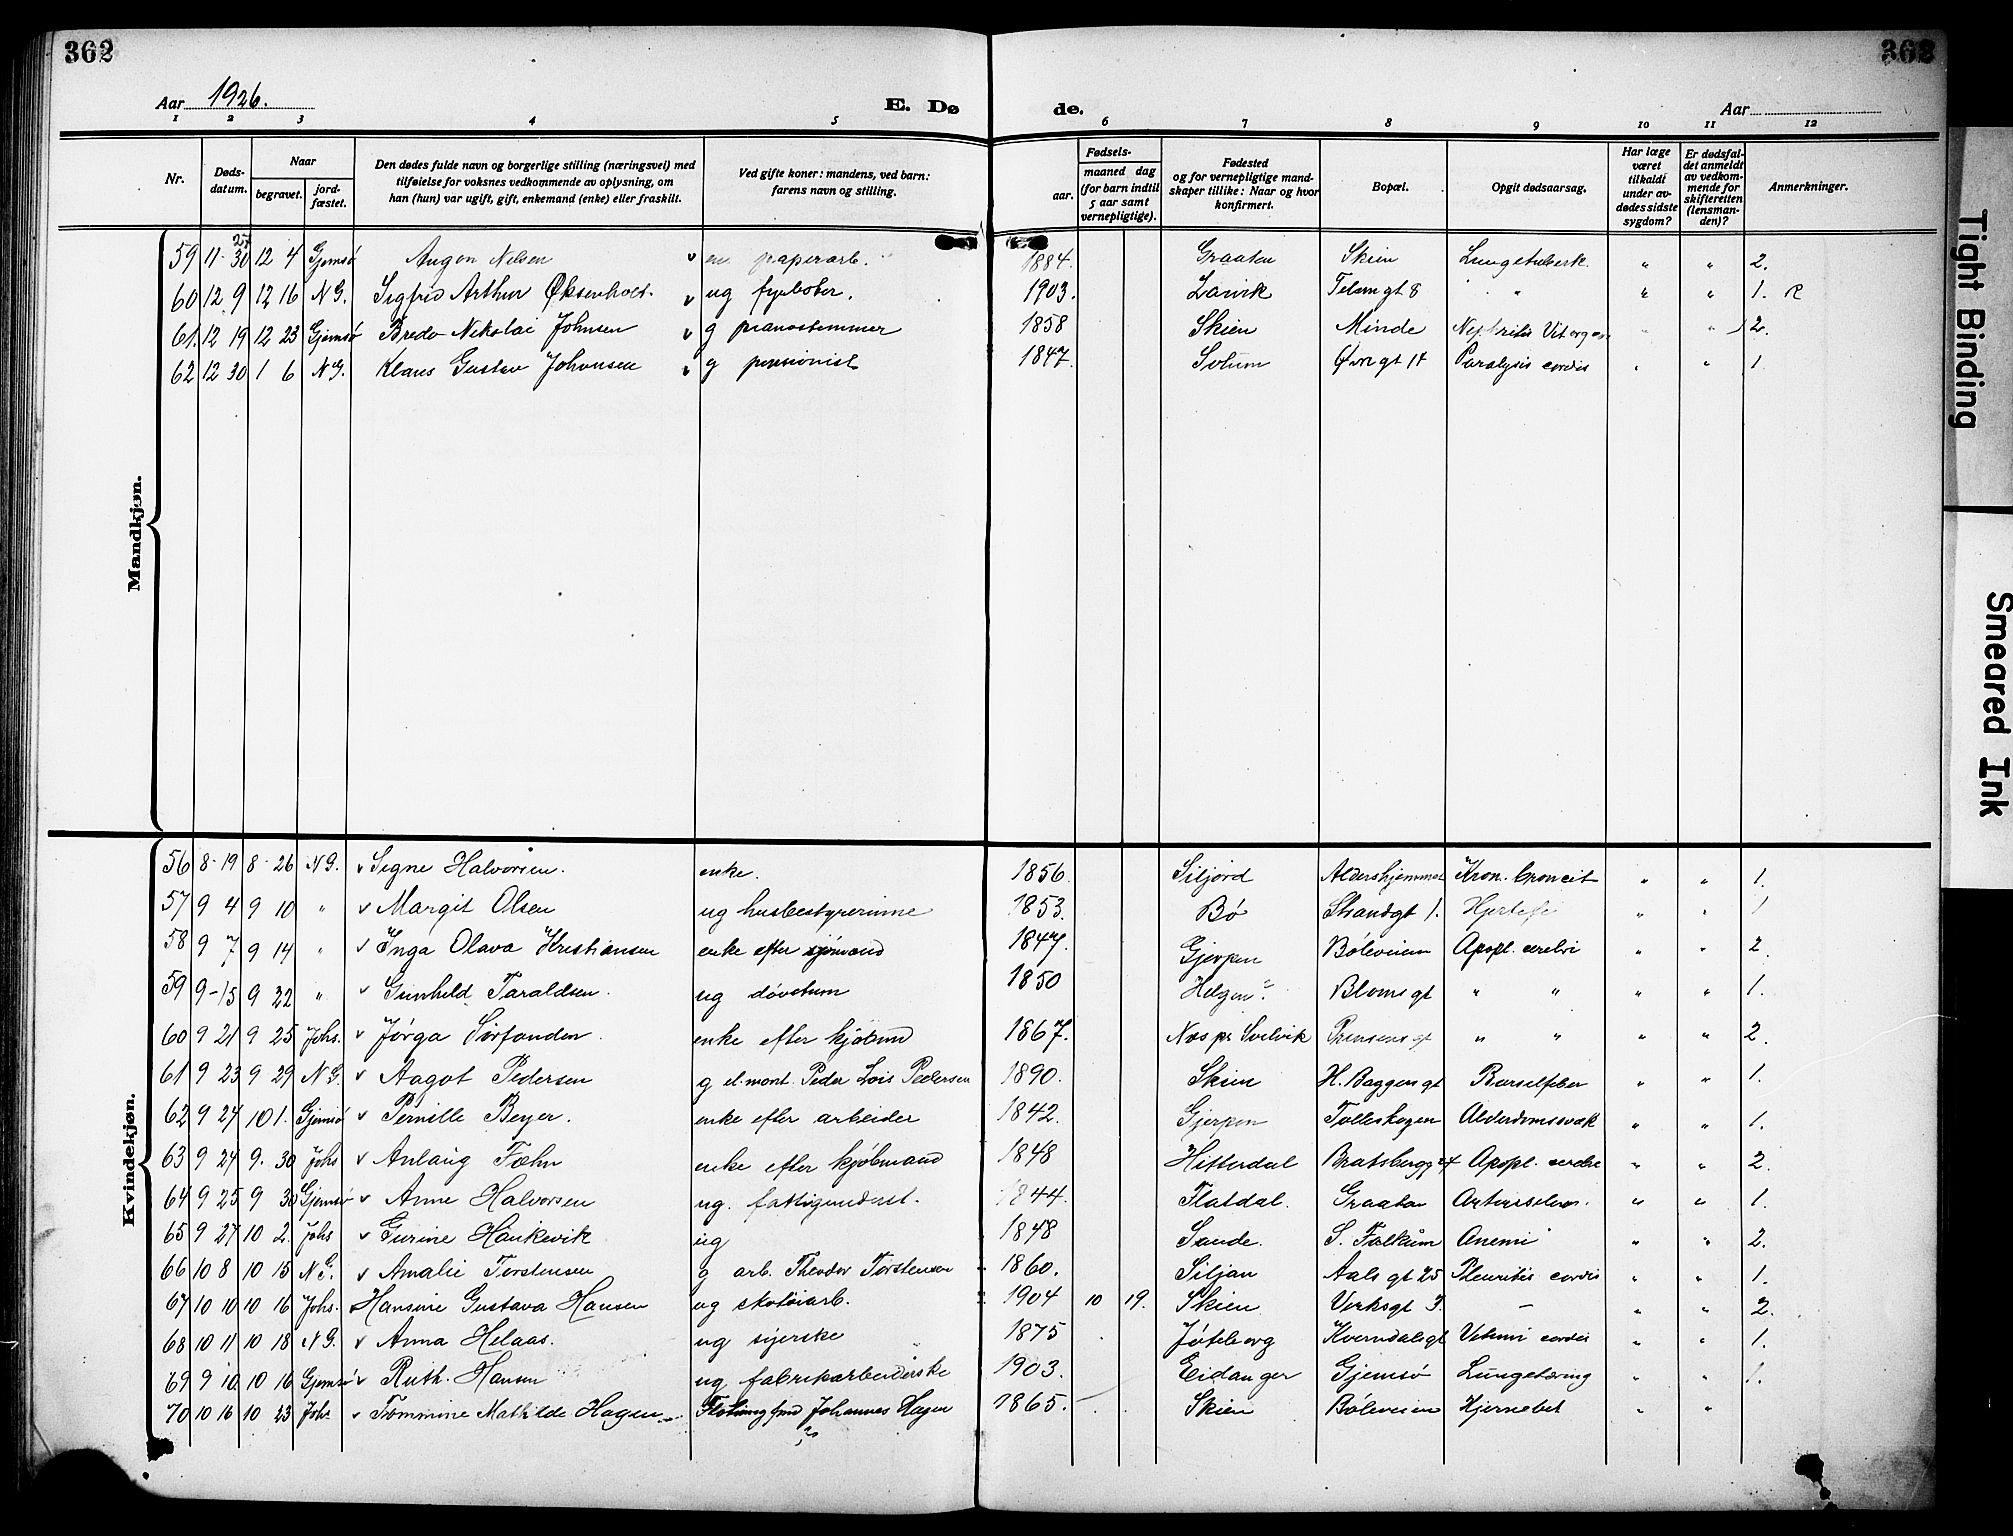 362
362
Aar 1926.
E. Dø
de.
Aar
1 2 3 4 5 6 7 8 9 10 11 12
Nr.
Døds-
datum.
Naar
begravet.
jord-
fæstet.
Den dødes fulde navn og borgerlige stilling (næringsvei) med
tilføielse for voksnes vedkommende av oplysning, om
han (hun) var ugift, gift, enkemand (enke) eller fraskilt.
Ved gifte koner: mandens, ved barn:
farens navn og stilling.
Fødsels-
aar.
maaned dag
(for barn indtil
5 aar samt
vernepligtige).
Fødested
og for vernepligtige mand-
skaper tillike: Naar og hvor
konfirmert.
Bopæl.
Opgit dødsaarsag.
Har læge
været
tilkaldt
under av-
dødes sidste
sygdom?
Er dødsfal-
det anmeldt
av vedkom-
mende for
skifteretten
(lensman-
den)?
Anmerkninger.
Mandkjøn.
27
59 11 30 12 4 Gjemsø Nilsen v paperarb. 1884. Graaten Skien Lungetuberk. " " 2.
60 12 9 12 16 N G. Sigfrid Arthur Øksenholt. v ug fyrbøter. 1903. Larvik Telemgt 8 " " " 1. R
61. 12 19 12 23 Gjemsø Bredo Nikolai Johnsen v g pianostemmer 1858 Skien Minde " " 2.
62 12 30 1 6 N G. Klaus Gustav Johnsen v g pensionist 1847. Solum Øvregt 14 Paralysis cordis " " 1
Kvindekjøn.
56 8-19 8-26 N G. v Signe Halvorsen. enke. 1856. Siljord Aldershjemmet Kron. bronceit " " 1.
57 9 4 9 10 " v Margit Olsen ug husbestyrerinne 1853. Bø Strandgt 1. " " 1
58 9 7 9 14 " v Inga Olava Kristiansen enke efter sjømand 1847. Gjerpen Bøleveien Apopl. cerebri " " 2
59 9-15 9 22 " v Gunhild Taraldsen. ug døvstum 1850 Helgen? Blomsgt " " " " 1.
60 9 21 9 25 Johs. v Jørga enke efter kjøbmd 1867. Næs pr Svelvik Prinsensgt " " " " 2.
61 9 23 9 29 N G. v Aagot Pedersen g el. mont. Peder Lois Pedersen 1890. Skien H. Baggensgt Barselfeber " " 1.
62 9 27 10 1. Gjemsø v Pernille Beyer. enke efter arbeider 1842. Gjerpen Folleskogen Alderdomssvak " " 1.
63 9 24 9. 30 Johs v Anlaug Fæhn enke efter kjøbmand 1848 Hitterdal Bratsberggt Apopl. cerebri " " 2.
64 9 25 9 30 Gjemsø v Anne Halvorsen ug. fattigunderst. 1844. Flatdal. Graaten " " 1.
65 9 27 10 2. Johs v Gurine Haukevik ug 1848 Sande. S. Falkum Anemi " " 2.
66 10 8 10 15 N G. v Amalie Torstensen g arb. Theodor Torstensen 1860. Siljan Aalsgt 25 cordis " " 1.
67 10 10 10 16 Johs. Hansine Gustava Hansen ug skotøiarb. 1904 10 19. Skien Verksgt 3. — " " 2.
68 10 11 10 18 N G. v Anna Helaas. ug syerske 1875 Gøteborg Kverndalsgt Vitium cordis " " 1.
69 9 10 10 16 Gjemsø v Ruth. Hansen ug fabrikarbeiderske 1903. Eidanger Gjemsø Lungetæring " " 1.
70 10 16 10 23 Johs v Tomine Mathilde Hagen Johannes Hagen 1865. Skien Bøleveien " "
Tight Binding
Smeared Ink